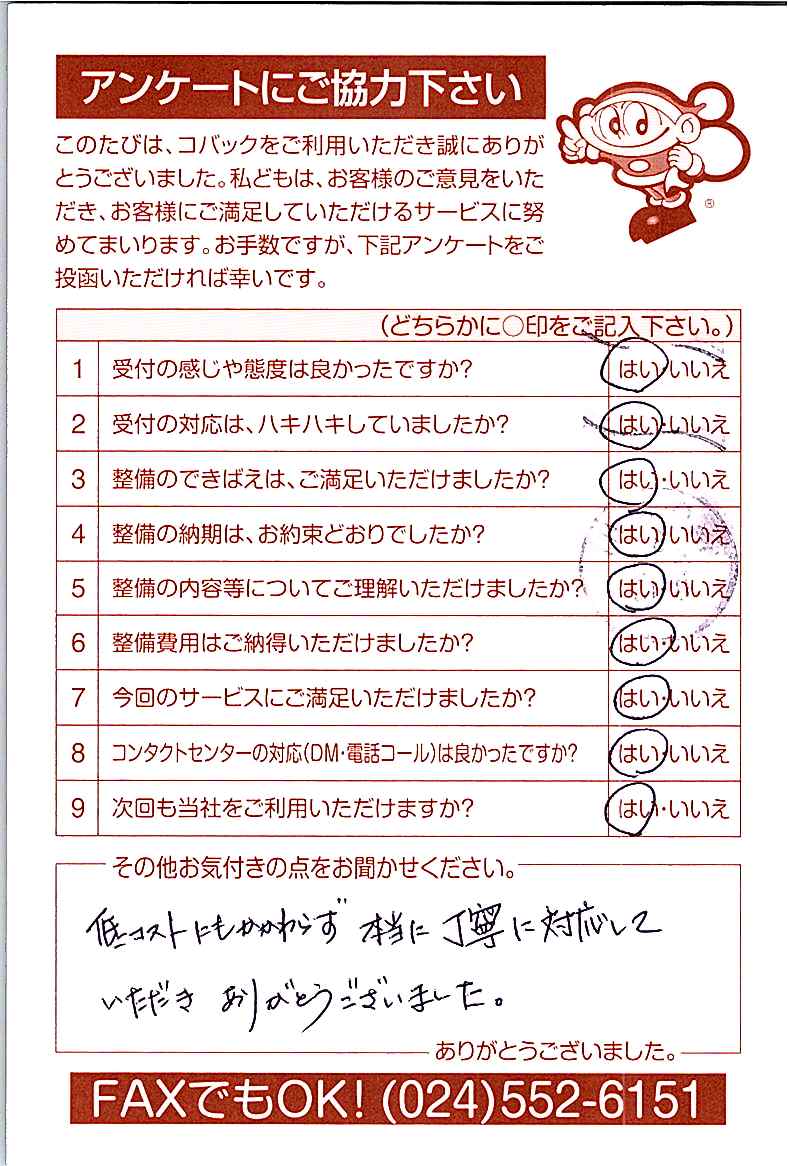 アンケートにご協力下さい
このたびは、コバックをご利用いただき誠にありが
とうございました。私どもは、お客様のご意見をいた
だき、お客様にご満足していただけるサービスに努
めてまいります。お手数ですが、下記アンケートをご
投函いただければ幸いです。
®
(どちらかに○印をご記入下さい。)
1 受付の感じや態度は良かったですか? はい・いいえ
2 受付の対応は、ハキハキしていましたか? はい・いいえ
3 整備のできばえは、ご満足いただけましたか? はい・いいえ
4 整備の納期は、お約束どおりでしたか? はい・いいえ
5 整備の内容等についてご理解いただけましたか? はい・いいえ
6 整備費用はご納得いただけましたか? はい・いいえ
7 今回のサービスにご満足いただけましたか? はい・いいえ
8 コンタクトセンターの対応(DM・電話コール)は良かったですか? はい・いいえ
9 次回も当社をご利用いただけますか? はい・いいえ
その他お気付きの点をお聞かせください。
低コストにもかかわらず 本当に 丁寧に対応して
いただき ありがとうございました。
ありがとうございました。
FAXでもOK! (024)552-6151